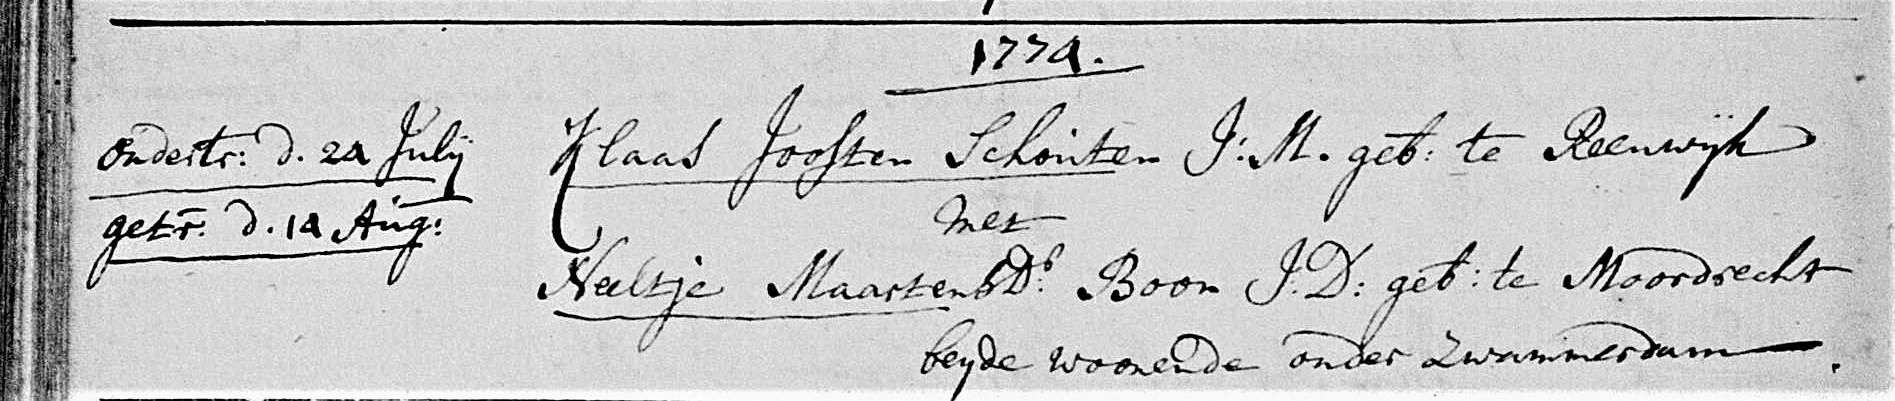 1774.
ondertr: d. 24 Julij
getr: d. 14 Aug:
Klaas Joosten Schouten J: M. geb: te Reeuwijk
met
Neeltje Maartens Dr. Boon J. D: geb: te Moordrecht
beyde woonende onder Zwammerdam.